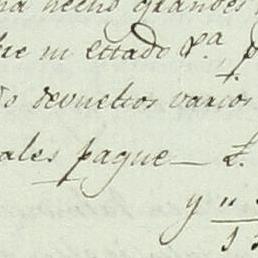 na hecho grandes
su estado &ra, p
do devueltos varios
ales pague —
y "